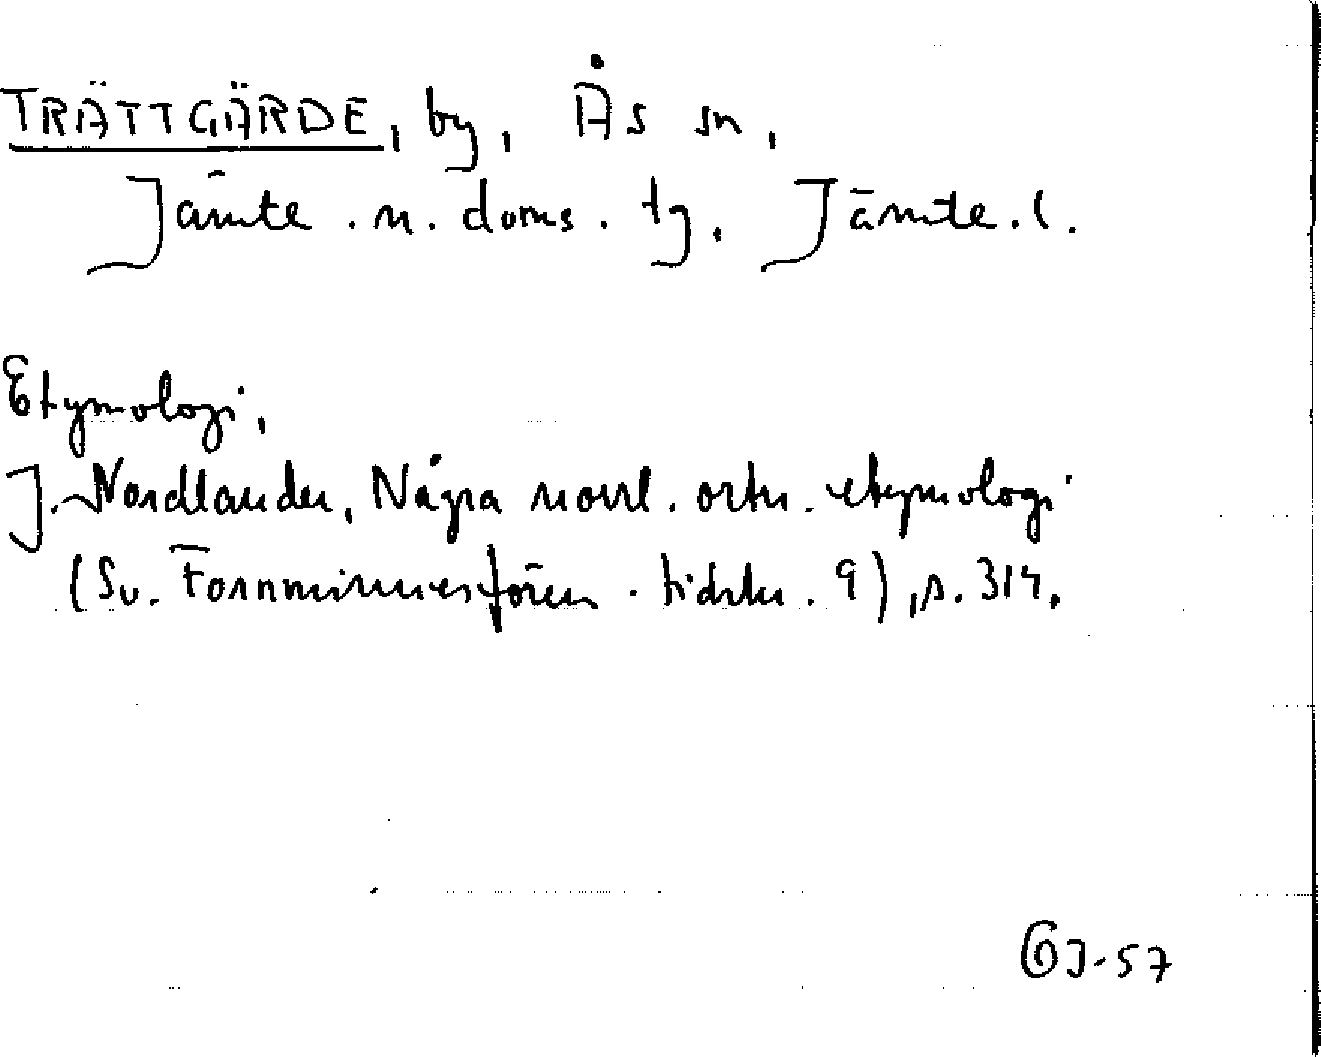 TRÄTTGÄRDE, by, Ås sn,
Jämte. n. doms. tg. Jämte. l.
Etymologi,
J. Nordlander, Några norrl. ortn. etymologi
(Sv. Fornminnesfören. tidskr. 9), s. 314.
J-57